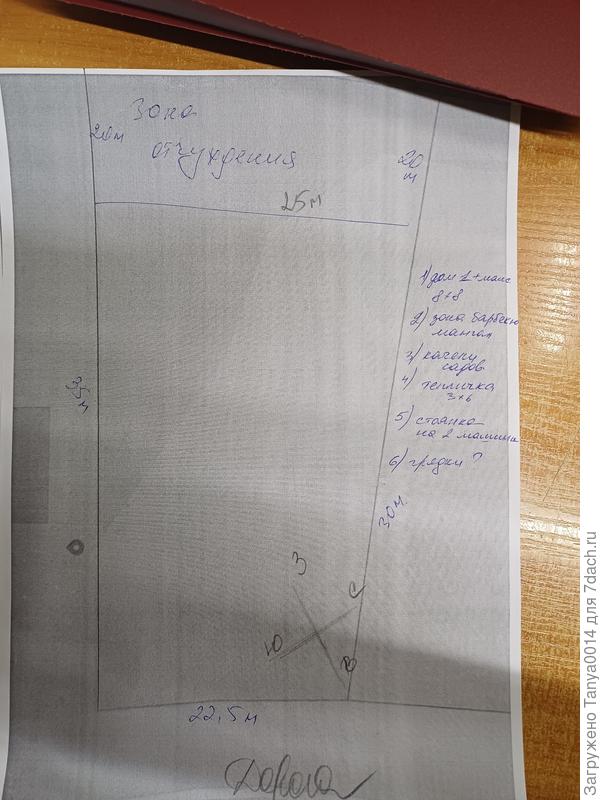 Зона
20м
отчуждения
20
м
25м
1) дом 1+манс
8+8
2) зона барбекю
мангал
3) качели
садов
4) тепличка
3+6
5) стоянка
на 2 машины
6) грядки ?
м
30м.
З
С
Ю
В
22,5м
Дорога
Загружено Tanya0014 для 7dach.ru